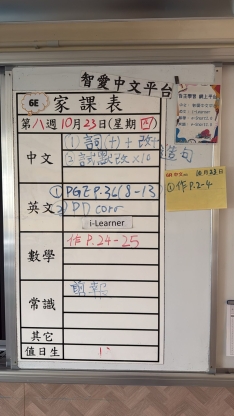 智愛中文平台
6E
家課表
第八週10月23日(星期四)
中文
(1)詞(十)+改+造句
(2)試懲改x10
英文
①PGE P.36(8-13
②PD corr
i-Learner
數學
作P.24-25
常識
剪報
其它
值日生
①作P.2-4